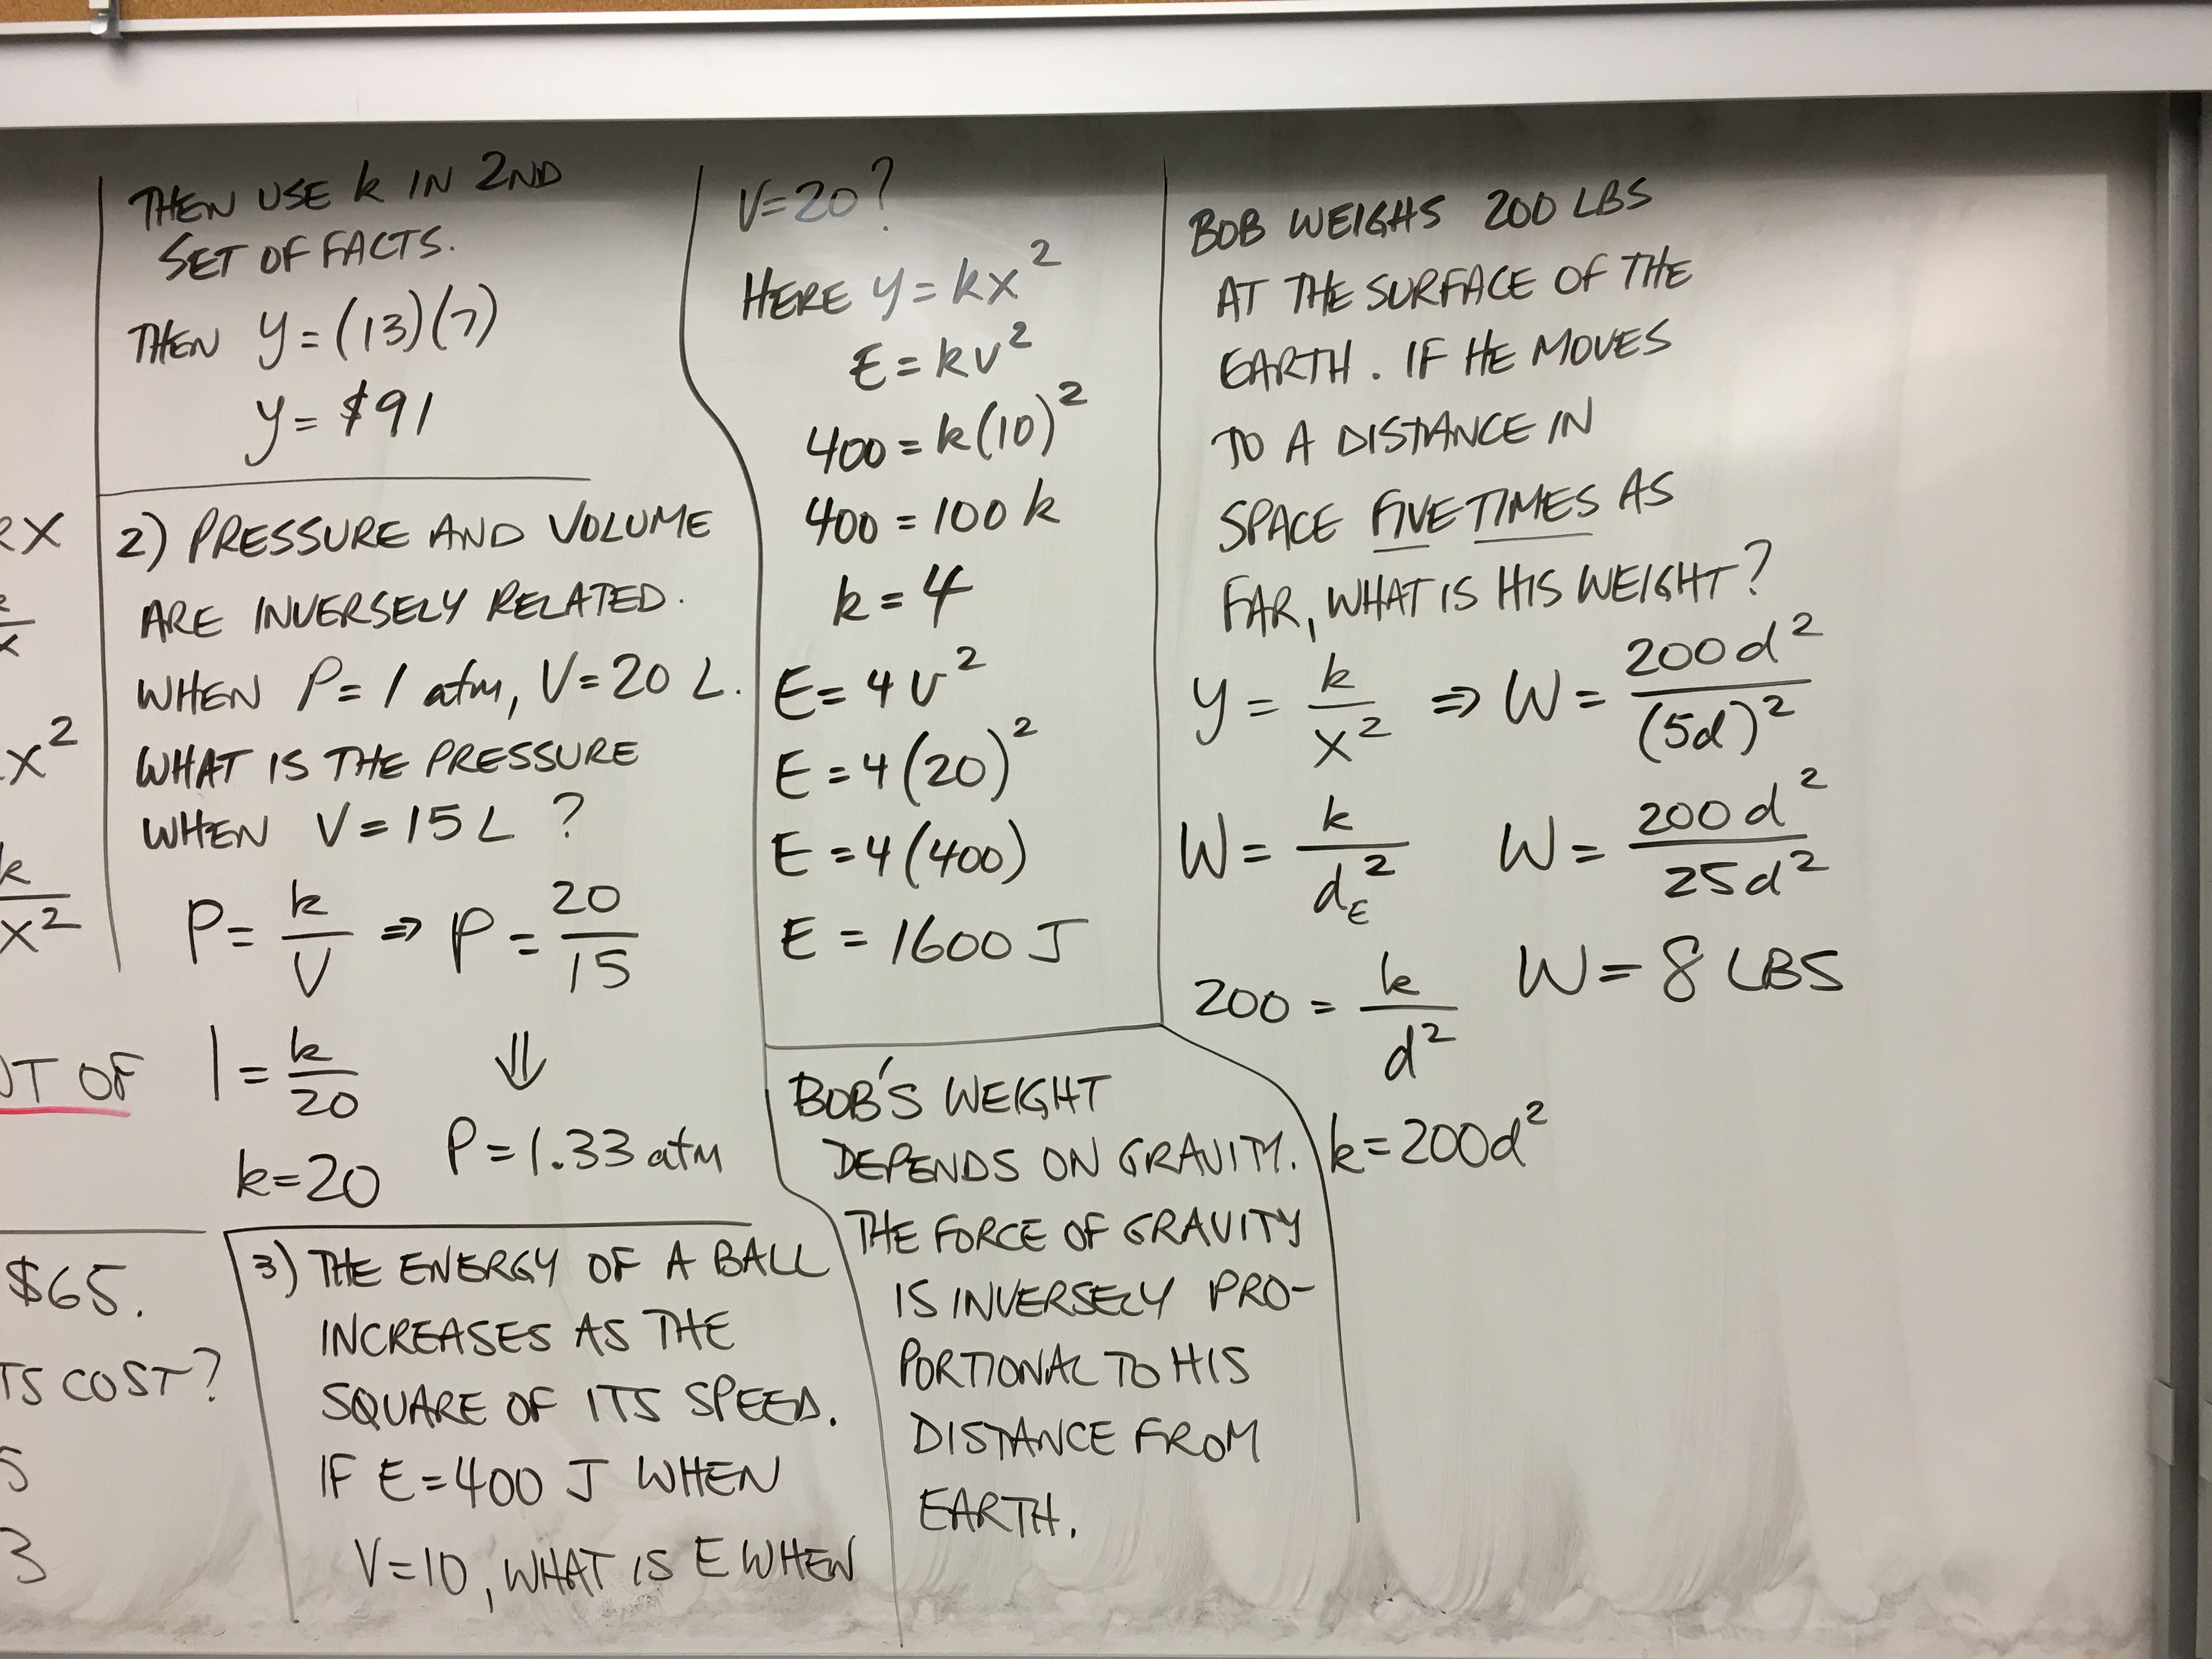 RX
k
x
x²
k
x²
UT OF
$65.
TS COST?
5
3
THEN USE k IN 2ND
SET OF FACTS.
THEN y = (13)(7)
y = $91
2) PRESSURE AND VOLUME
ARE INVERSELY RELATED.
WHEN P = 1 atm, V = 20 L.
WHAT IS THE PRESSURE
WHEN V = 15 L ?
P = k/V ⇒ P = 20/15
1 = k/20 ⇓
k = 20 P = 1.33 atm
3) THE ENERGY OF A BALL
INCREASES AS THE
SQUARE OF ITS SPEED.
IF E = 400 J WHEN
V = 10, WHAT IS E WHEN
V = 20?
HERE y = kx²
E = kv²
400 = k(10)²
400 = 100 k
k = 4
E = 4v²
E = 4(20)²
E = 4(400)
E = 1600 J
BOB'S WEIGHT
DEPENDS ON GRAVITY.
THE FORCE OF GRAVITY
IS INVERSELY PRO-
PORTIONAL TO HIS
DISTANCE FROM
EARTH.
BOB WEIGHS 200 LBS
AT THE SURFACE OF THE
EARTH. IF HE MOVES
TO A DISTANCE IN
SPACE FIVE TIMES AS
FAR, WHAT IS HIS WEIGHT?
y = k/x² ⇒ W = 200d²/(5d)²
W = k/d_E² W = 200d²/25d²
200 = k/d² W = 8 LBS
k = 200d²